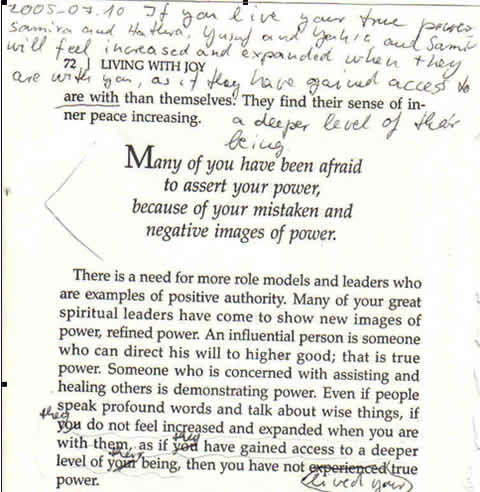 2005-07.10 If you live your true power
Samira and Hathra, Yusuf and Yahia and Samir
will feel increased and expanded when they
72 LIVING WITH JOY
are with you, as if they have gained access to
are with than themselves. They find their sense of in-
ner peace increasing. a deeper level of their
being.
Many of you have been afraid
to assert your power,
because of your mistaken and
negative images of power.
There is a need for more role models and leaders who
are examples of positive authority. Many of your great
spiritual leaders have come to show new images of
power, refined power. An influential person is someone
who can direct his will to higher good; that is true
power. Someone who is concerned with assisting and
healing others is demonstrating power. Even if people
speak profound words and talk about wise things, if
they
you do not feel increased and expanded when you are
they
with them, as if you have gained access to a deeper
their
level of your being, then you have not experienced true
power. lived your